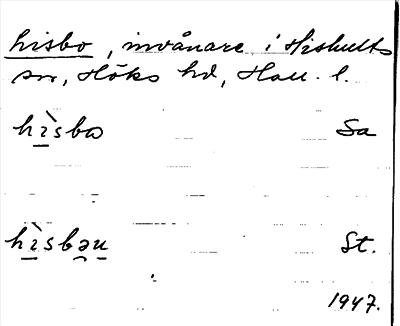 hisbo, invånare i Hishults
sn, Höks hd, Hall. l.
hìsbo Sa
hìsbəu St.
1947.